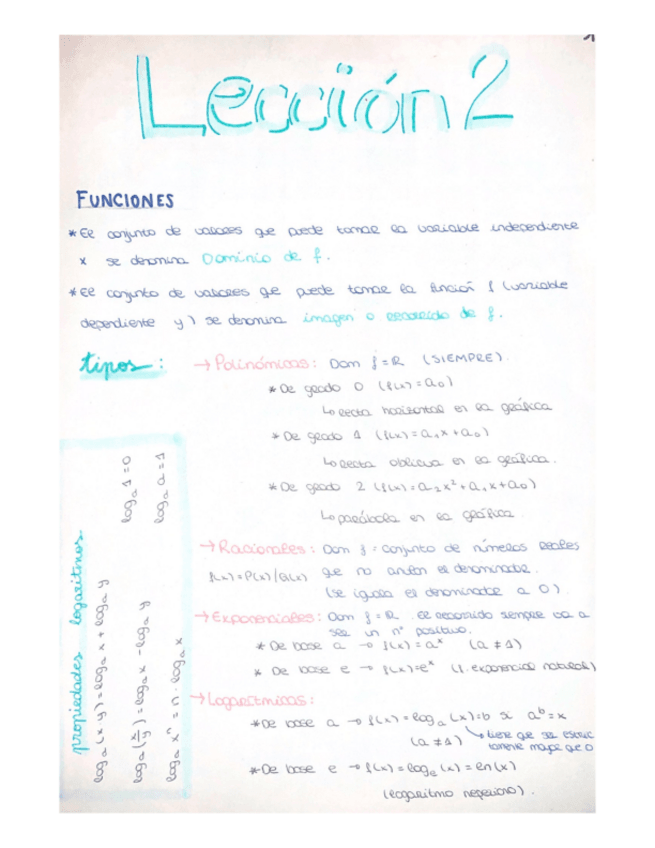 1
Lección 2
FUNCIONES
* El conjunto de valores que puede tomar la variable independiente
x se denomina Dominio de f.
* El conjunto de valores que puede tomar la función f (variable
dependiente y) se denomina imagen o recorrido de f.
tipos:
→ Polinómicas: Dom f = ℝ (SIEMPRE).
* De grado 0 (f(x) = a₀)
↳ recta horizontal en la gráfica
* De grado 1 (f(x) = a₁x + a₀)
↳ recta oblicua en la gráfica.
* De grado 2 (f(x) = a₂x² + a₁x + a₀)
↳ parábola en la gráfica.
→ Racionales: Dom f = conjunto de números reales
f(x) = P(x)/Q(x) que no anulen el denominador.
(se iguala el denominador a 0).
→ Exponenciales: Dom f = ℝ. El recorrido siempre va a
ser un nº positivo.
* De base a → f(x) = aˣ (a ≠ 1)
* De base e → f(x) = eˣ (f. exponencial natural)
→ Logarítmicas:
* De base a → f(x) = logₐ(x) = b si aᵇ = x
(a ≠ 1) ↳ tiene que ser estric
tamente mayor que 0
* De base e → f(x) = logₑ(x) = ln(x)
(logaritmo neperiano).
propiedades logaritmos
logₐ(x y) = logₐ x + logₐ y
logₐ 1 = 0
logₐ(x/y) = logₐ x - logₐ y
logₐ a = 1
logₐ xⁿ = n · logₐ x